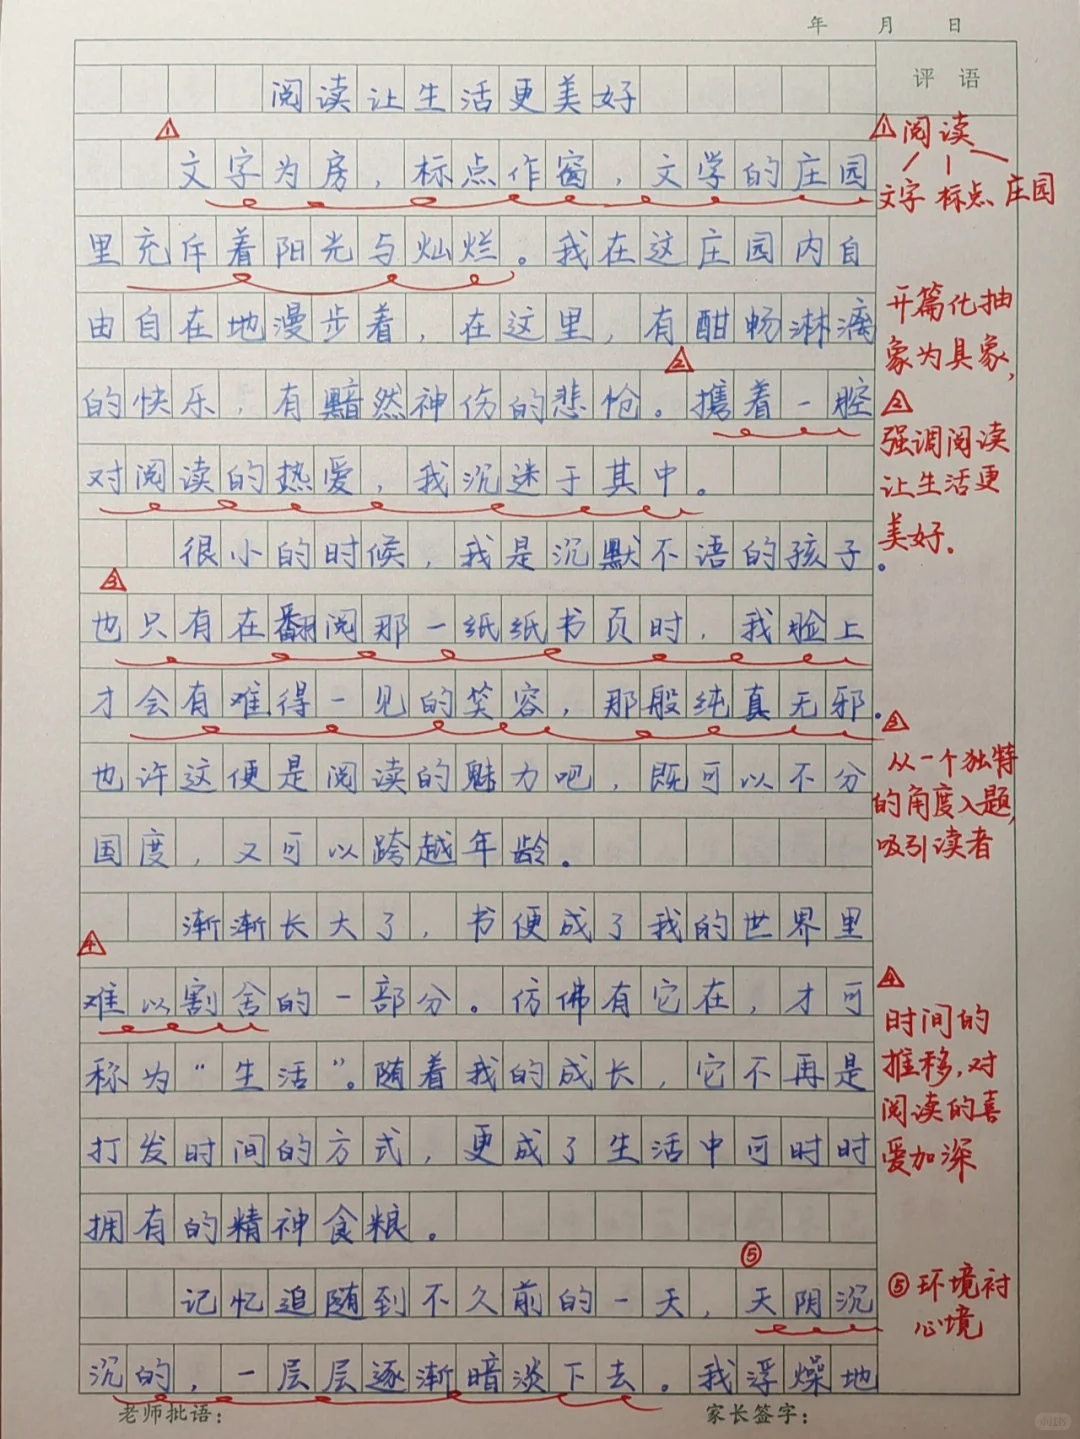 年 月 日
评 语
阅读让生活更美好
文字为房，标点作窗，文学的庄园
里充斥着阳光与灿烂。我在这庄园内自
由自在地漫步着，在这里，有酣畅淋漓
的快乐，有黯然神伤的悲怆。携着一腔
对阅读的热爱，我沉迷于其中。
很小的时候，我是沉默不语的孩子。
也只有在翻阅那一纸纸书页时，我脸上
才会有难得一见的笑容，那般纯真无邪。
也许这便是阅读的魅力吧，既可以不分
国度，又可以跨越年龄。
渐渐长大了，书便成了我的世界里
难以割舍的一部分。仿佛有它在，才可
称为“生活”。随着我的成长，它不再是
打发时间的方式，更成了生活中可时时
拥有的精神食粮。
记忆追随到不久前的一天，天阴沉
沉的，一层层逐渐暗淡下去。我浮燥地
①阅读
文字 标点 庄园
开篇化抽
象为具象，
②
强调阅读
让生活更
美好．
③
从一个独特
的角度入题，
吸引读者
④
时间的
推移，对
阅读的喜
爱加深
⑤环境衬
心境
①
②
③
④
⑤
老师批语：
家长签字：
小红书